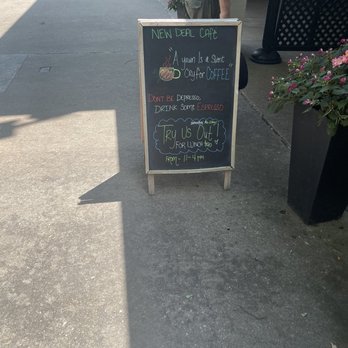 NEW DEAL CAFE
"A yawn Is a Silent
Cry for COFFEE"
DON'T BE DEPRESSO,
DRINK SOME ESPRESSO
Try Us Out!
FOR LUNCH too